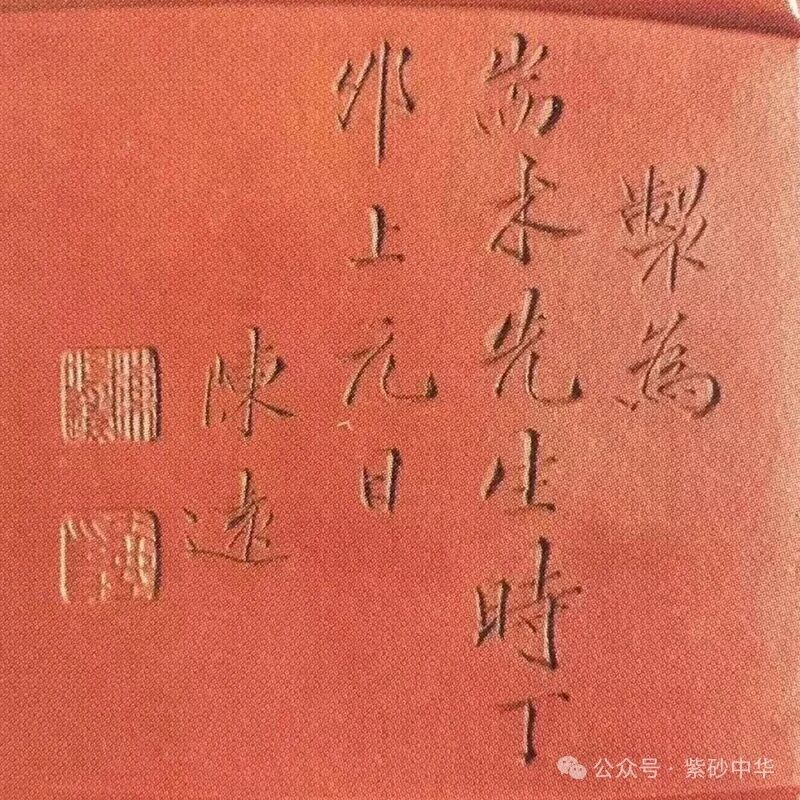 製為
尚木先生時丁
卯上元日
陳遠
公众号·紫砂中华